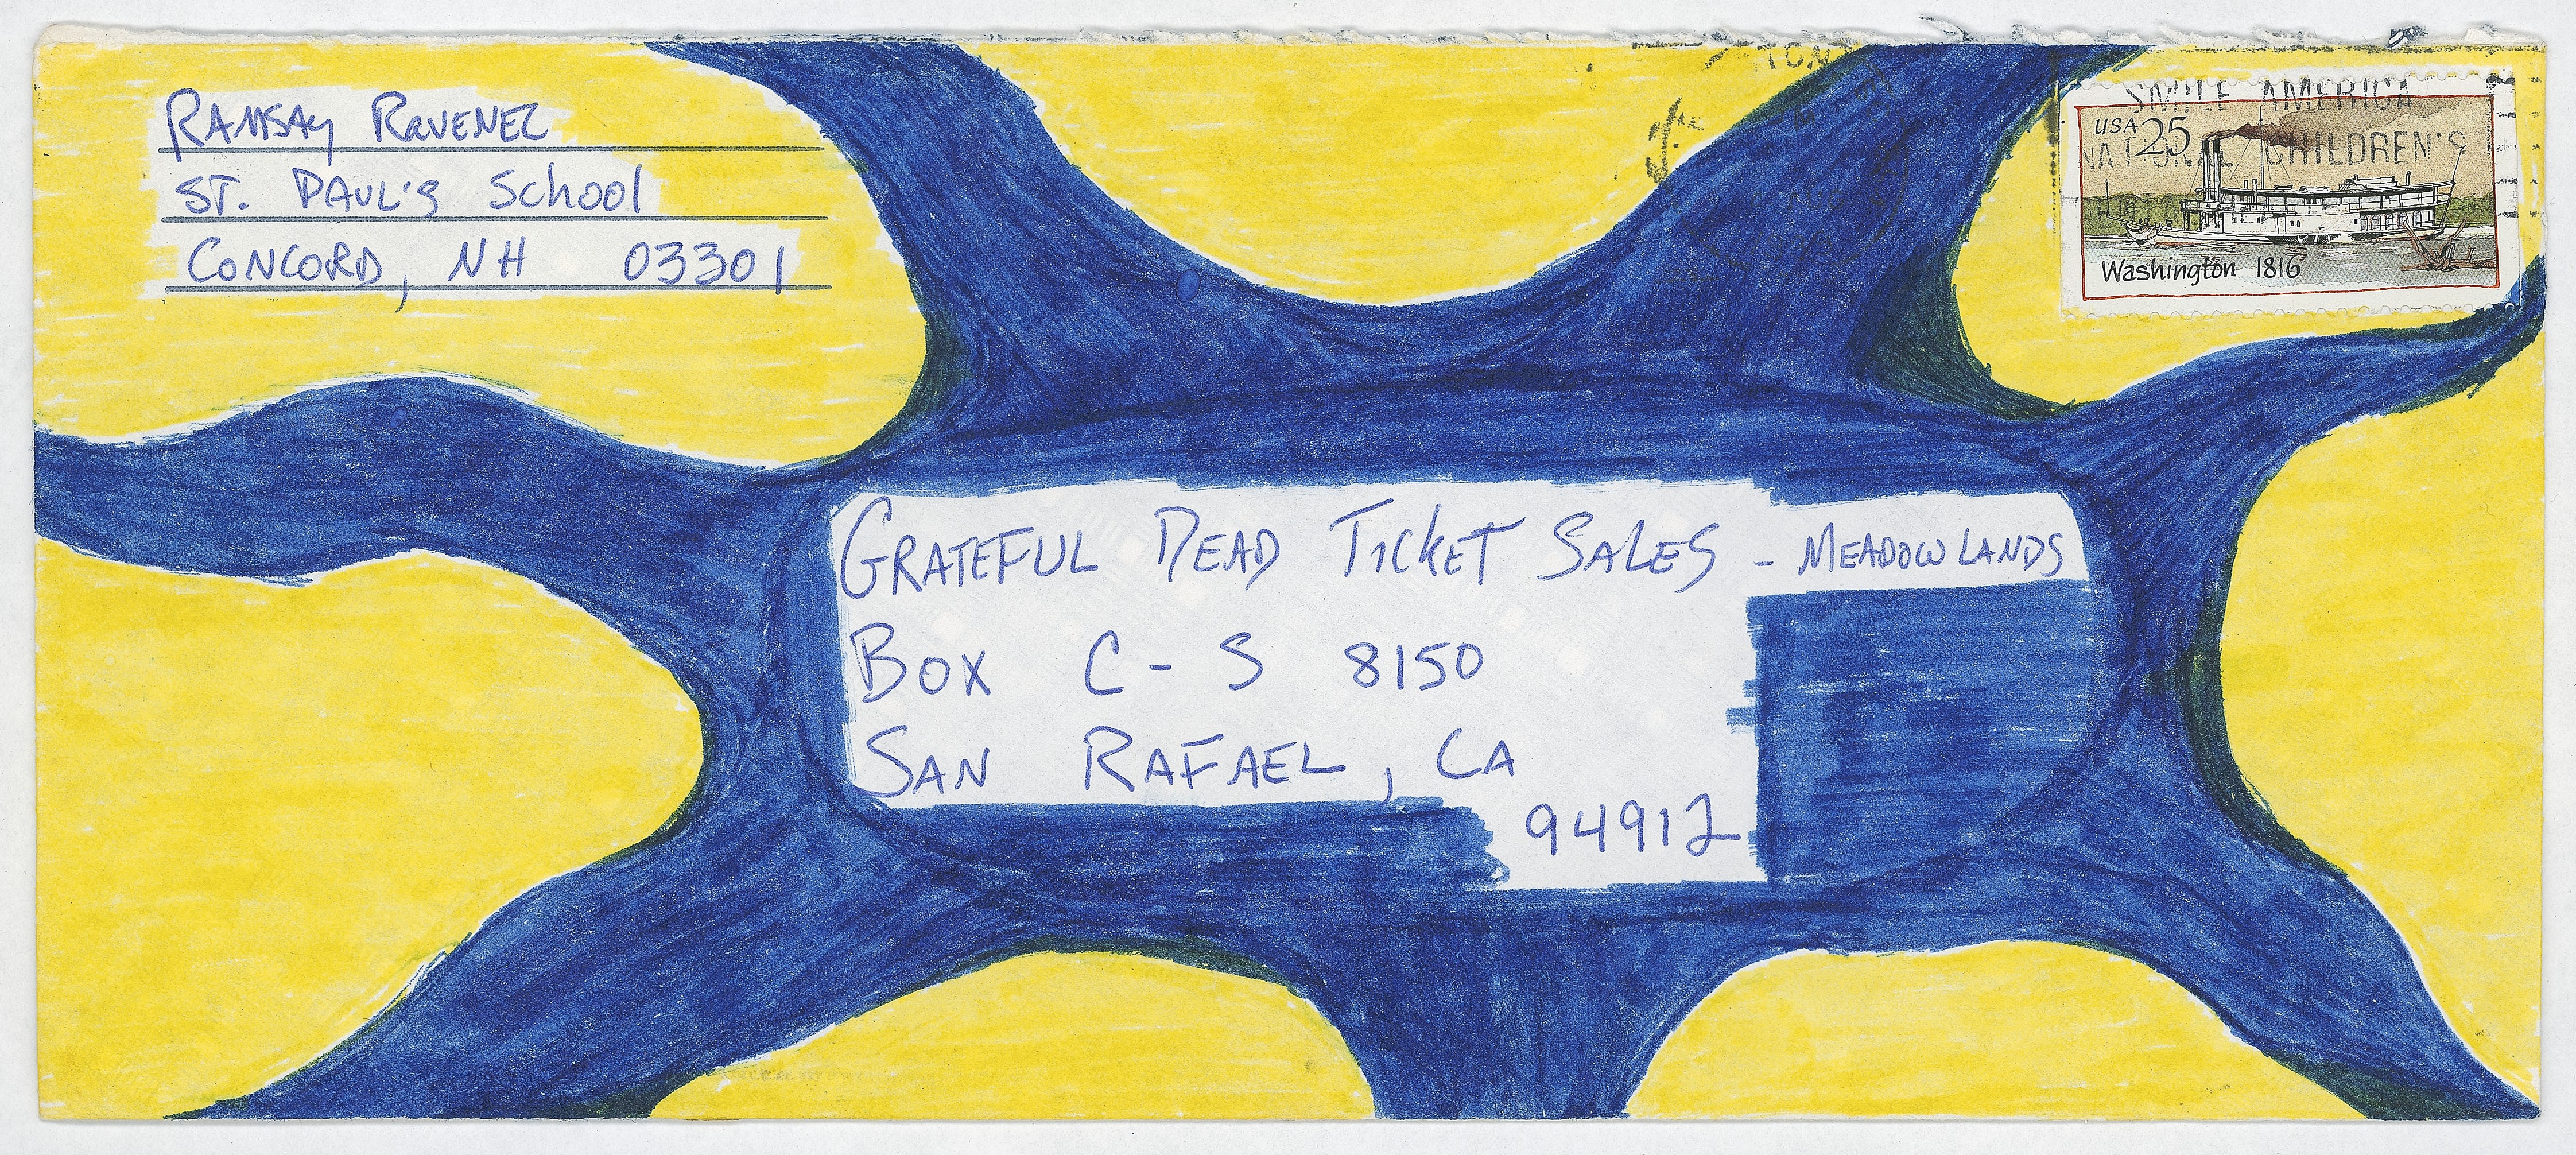 RAMSAY RAVENEL
ST. PAUL'S School
CONCORD, NH 03301
TON
SMILE AMERICA
NATIONAL CHILDREN'S
USA 25
Washington 1816
GRATEFUL DEAD TICKET SALES - MEADOWLANDS
BOX C-S 8150
SAN RAFAEL, CA
94912